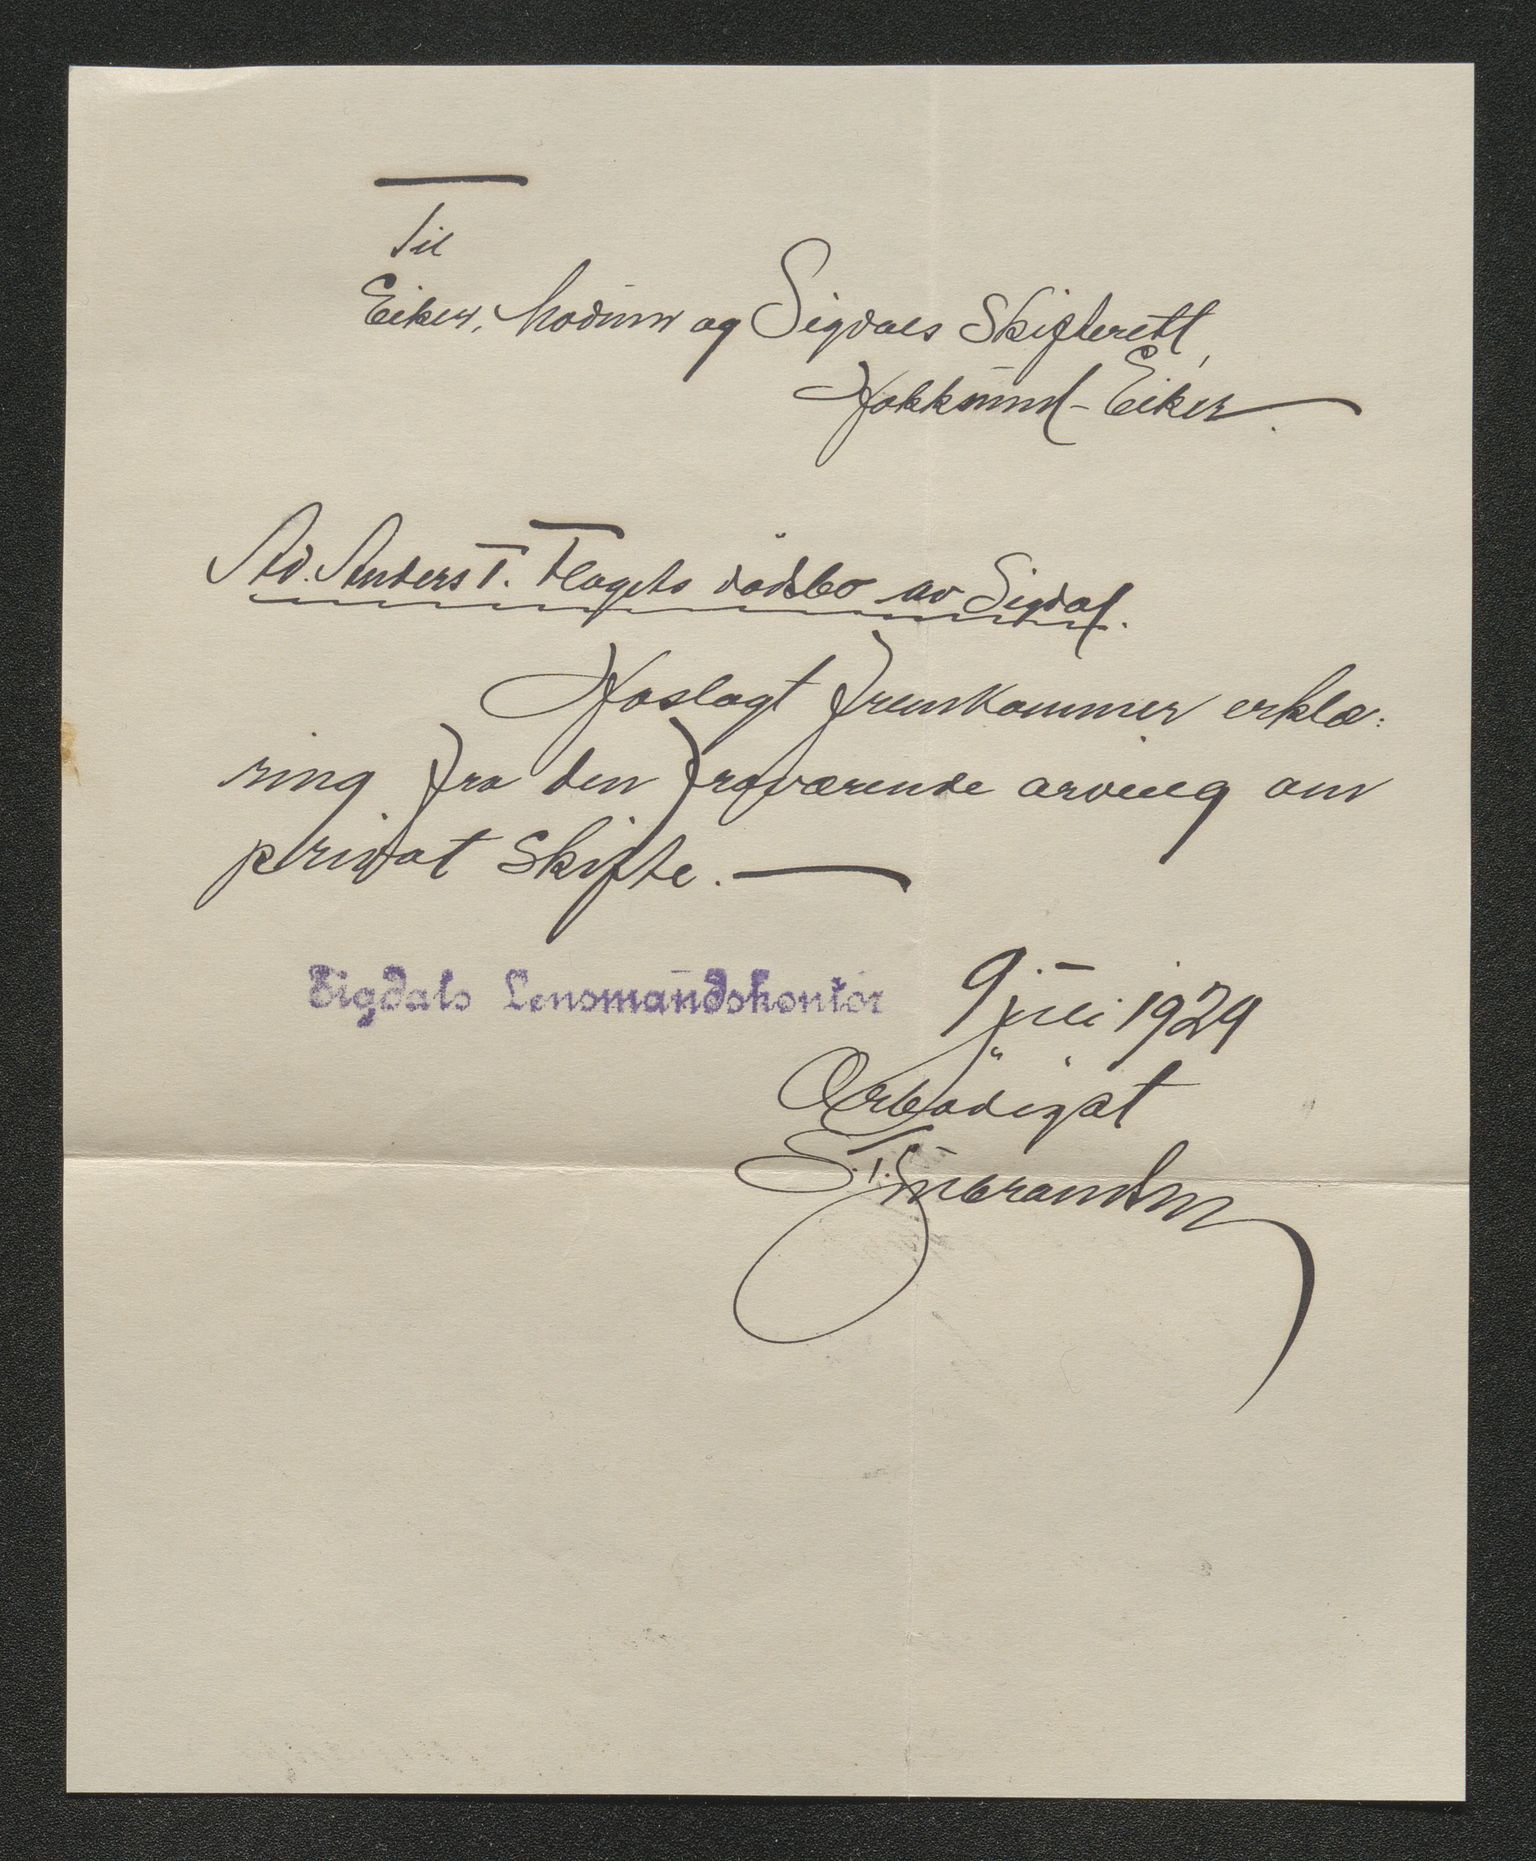 Til
Eiker, Modum og Sigdals Skifterett,
Hokksund - Eiker.
Ad. Anders T. Flagets dødsbo av Sigdal.
Hoslagt fremkommer erklæ:
ring fra den fraværende arving om
privat skifte. —
Sigdals Lensmandskontor 9 juli 1929
Ærbødigst